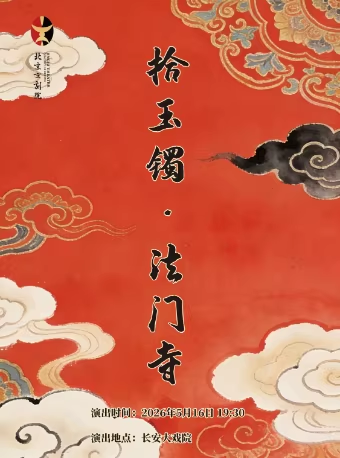 北京京剧院
拾玉镯·法门寺
演出时间：2026年5月16日 19:30
演出地点：长安大戏院